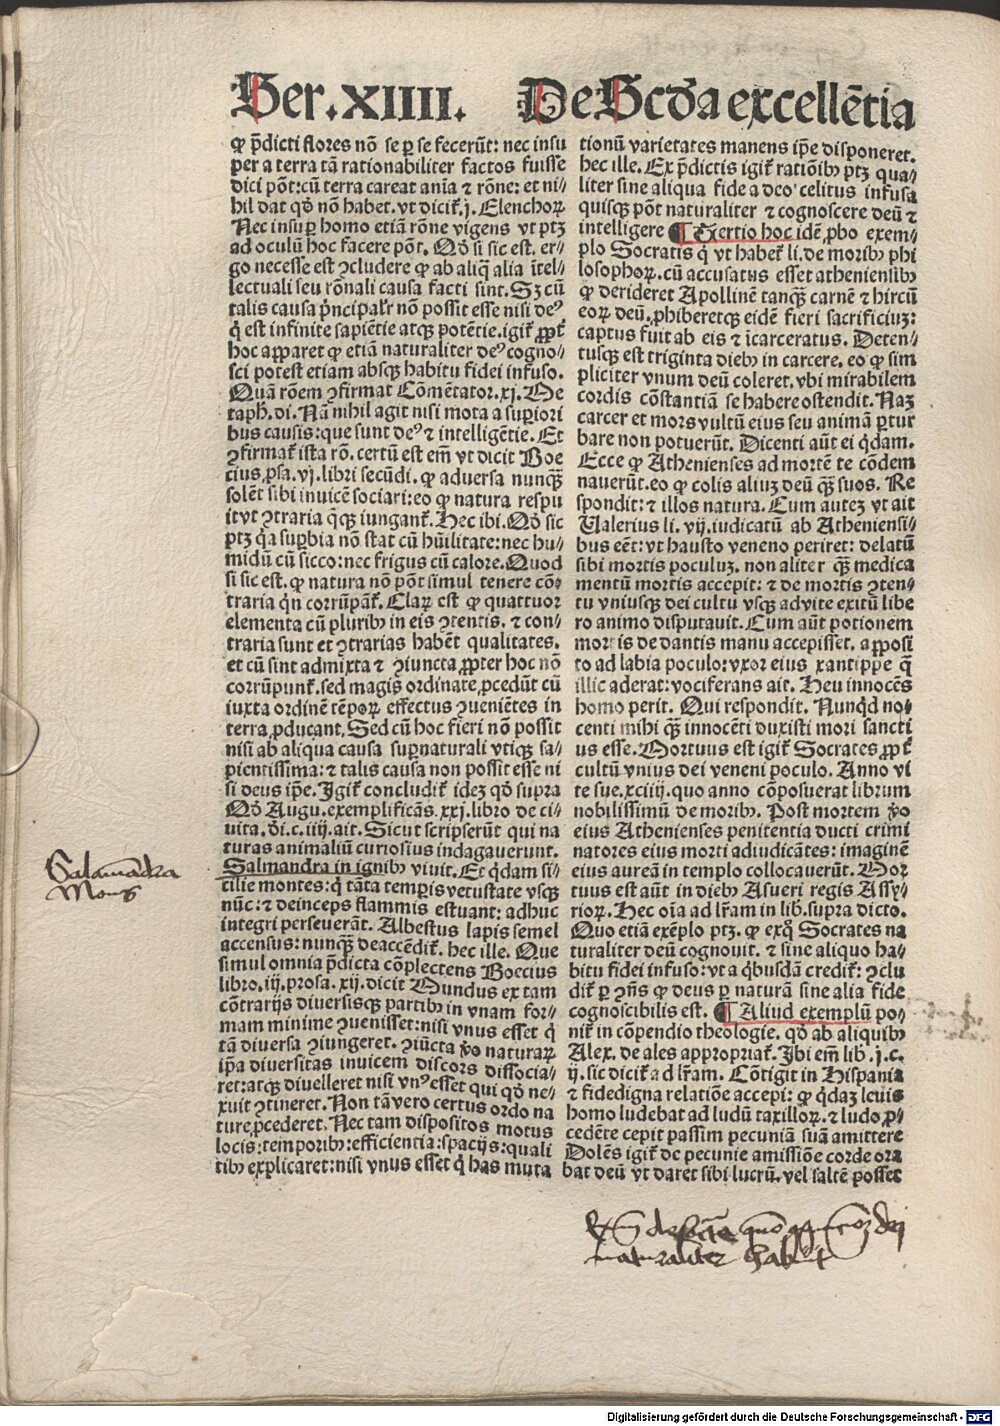 Ser.XIIII. De Scḋa excellētia
ꝙ p̄dicti flores nō se ꝑ se fecerūt: nec insu
per a terra tā rationabiliter factos fuisse
dici pōt: cū terra careat an̄ia ⁊ rōne: et ni//
hil dat qḋ nō habet. vt dicit᷑.j. Elenchoꝝ
Nec insuꝑ homo etiā rōne vigens vt ptꝫ
ad oculū hoc facere pōt. Qḋ si sic est. er//
go necesse est ꝯcludere ꝙ ab aliq̄ alia ītel//
lectuali seu rōnali causa facti sint. Sꝫ cū
talis causa p̄ncipal'r nō possit esse nisi deꝰ
q̇ est infinite sapiētie atqꝫ potētie. igit᷑ ꝓpt᷑
hoc apparet ꝙ etiā naturaliter deꝰ cogno//
sci potest etiam absqꝫ habitu fidei infuso.
Quā rōem ꝯfirmat Cōmētator.xj. Me
taph̄. di. Nā nihil agit nisi mota a suꝑiori
bus causis: que sunt deꝰ ⁊ intelligētie. Et
ꝯfirmat᷑ ista rō. certū est em̄ vt dicit Boe
cius ꝓsa.vj. libri secūdi. ꝙ aduersa nunqꝫ̄
solēt sibi inuicē sociari: eo ꝙ natura respu
it vt ꝯtraria q̄qꝫ iungant᷑. Hec ibi. Qḋ sic
ptꝫ q̇a suꝑbia nō stat cū hūilitate: nec hu//
midū cū sicco: nec frigus cū calore. Quod
si sic est. ꝙ natura nō pōt simul tenere cō//
traria q̇n corrūpāt᷑. Claꝝ est ꝙ quattuor
elementa cū pluribꝫ in eis ꝯtentis. ⁊ con//
traria sunt et ꝯtrarias habēt qualitates.
et cū sint admixta ⁊ ꝯiuncta ꝓpter hoc nō
corrūpunt᷑. sed magis ordinate ꝓcedūt cū
iuxta ordinē tēpoꝝ effectus ꝯueniētes in
terra ꝓducant. Sed cū hoc fieri nō possit
nisi ab aliqua causa suꝑnaturali vtiqꝫ sa//
pientissima: ⁊ talis causa non possit esse ni
si deus ip̄e. Igit᷑ concludit᷑ ideꝫ qḋ supra
Qḋ Augu. exemplificās.xxj. libro de ci//
uita. d̄i.c.iiij. ait. Sicut scripserūt qui na
turas animaliū curiosius indagauerunt.
Salmandra in ignibꝫ viuit. Et q̇dam si//
cilie montes: q̇ tāta temꝑis vetustate vsqꝫ
nūc: ⁊ deinceps flammis estuant: adhuc
integri perseuerāt. Albestus lapis semel
accensus: nunqꝫ̄ deaccēdit᷑. hec ille. Que
simul omnia p̄dicta cōplectens Boecius
libro.iij. prosa.xij. dicit Mundus ex tam
cōtrarijs diuersisqꝫ partibꝫ in vnam for//
mam minime ꝯuenisset: nisi vnus esset q̇
tā diuersa ꝯiungeret. ꝯiūcta v̊o naturaꝝ
ip̄a diuersitas inuicem discors dissocia//
ret: atqꝫ diuelleret nisi vnꝰ esset qui qḋ ne//
xuit ꝯtineret. Non tā vero certus ordo na
ture ꝓcederet. Nec tam dispositos motus
locis: temporibꝫ: efficientia: spacijs: quali
tibꝫ explicaret: nisi vnus esset q̇ has muta
tionū varietates manens ip̄e disponeret.
hec ille. Ex p̄dictis igit᷑ ratiōibꝫ ptꝫ qua//
liter sine aliqua fide a deo celitus infusa
quisqꝫ pōt naturaliter ⁊ cognoscere deū ⁊
intelligere ¶ Tertio hoc idē ꝓbo exem//
plo Socratis q̇ vt habet᷑ li. de moribꝫ phi
losophoꝝ. cū accusatus esset atheniensibꝫ
ꝙ derideret Apollinē tanqꝫ̄ carnē ⁊ hircū
eoꝝ deū. ꝓhiberetqꝫ eidē fieri sacrificiuꝫ:
captus fuit ab eis ⁊ īcarceratus. Deten//
tusqꝫ est triginta diebꝫ in carcere. eo ꝙ sim
pliciter vnum deū coleret. vbi mirabilem
cordis cōstantiā se habere ostendit. Naꝫ
carcer et mors vultū eius seu animā ꝑtur
bare non potuerūt. Dicenti aūt ei q̇dam.
Ecce ꝙ Athenienses ad mortē te cōdem
nauerūt. eo ꝙ colis aliuꝫ deū qꝫ̄ suos. Re
spondit: ⁊ illos natura. Cum auteꝫ vt ait
Valerius li. vij. iudicatū ab Atheniensi//
bus eēt: vt hausto veneno periret: delatū
sibi mortis poculuꝫ. non aliter qꝫ̄ medica
mentū mortis accepit: ⁊ de mortis ꝯten//
tu vniusqꝫ dei cultu vsqꝫ ad vite exitū libe
ro animo disputauit. Cum aūt potionem
mortis de dantis manu accepisset. apposi
to ad labia poculo: vxor eius xantippe q̄
illic aderat: vociferans ait. Heu innocēs
homo perit. Qui respondit. Nunq̇d no//
centi mihi qꝫ̄ innocēti duxisti mori sancti
us esse. Mortuus est igit᷑ Socrates ꝓpt᷑
cultū vnius dei veneni poculo. Anno vi
te sue.xciiij. quo anno cōposuerat librum
nobilissimū de moribꝫ. Post mortem v̊o
eius Athenienses penitentia ducti crimi
natores eius morti adiudicātes: imaginē
eius aureā in templo collocauerūt. Mor
tuus est aūt in diebꝫ Asueri regis Assy//
rioꝝ. Hec oīa ad lr̄am in lib. supra dicto.
Quo etiā exēplo ptꝫ. ꝙ exq̊ Socrates na
turaliter deū cognouit. ⁊ sine aliquo ha//
bitu fidei infuso: vt a q̇busdā credit᷑: ꝯclu
dit᷑ ꝑ ꝯn̄s ꝙ deus ꝑ naturā sine alia fide
cognoscibilis est. ¶ Aliud exemplū po//
nit᷑ in cōpendio theologie. qḋ ab aliquibꝫ
Alex. de ales appropriat᷑. Ibi em̄ lib.j.c.
ij. sic dicit᷑ ad lr̄am. Cōtigit in Hispania
⁊ fidedigna relatiōe accepi: ꝙ q̇daꝫ leuis
homo ludebat ad ludū taxilloꝝ. ⁊ ludo ꝓ//
cedēte cepit passim pecuniā suā amittere
Dolēs igit᷑ de pecunie amissiōe corde ora
bat deū vt daret sibi lucrū. vel saltē posset
Salamādra
Mons
naturaliter
Digitalisierung gefördert durch die Deutsche Forschungsgemeinschaft - DFG